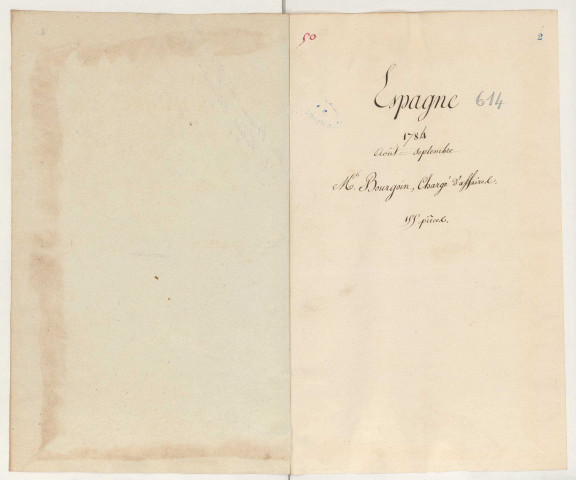 50
2
Espagne 614
1784
Août = Septembre
Mr. Bourgoin, Chargé d'affaires.
155 pièces.